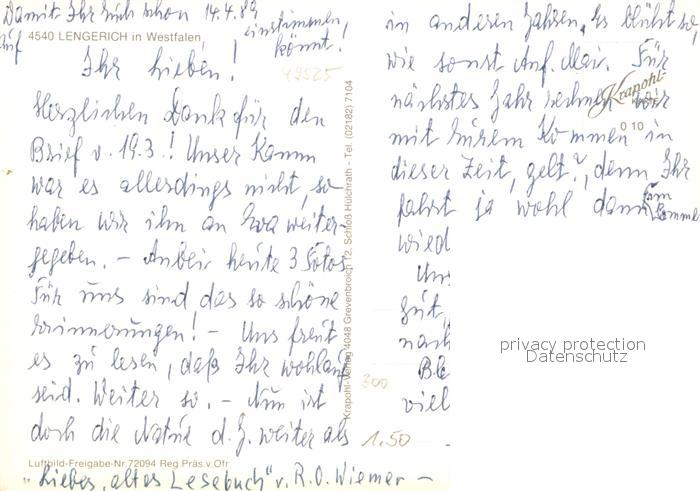 Damit Ihr Euch schon 14.4.89
auf
einstimmen,
könnt.
4540 LENGERICH in Westfalen
Ihr Lieben!
49525
Herzlichen Dank für den
Brief v. 19.3.! Unser Kamm
war es allerdings nicht, so
haben wir ihn an Eva weiter-
gegeben. - Anbei heute 3 Fotos
Für uns sind das so schöne
Erinnerungen! - Uns freut
es zu lesen, daß Ihr wohlauf
seid. Weiter so. - Nun ist
doch die Natur d. J. weiter als
Luftbild-Freigabe-Nr. 72094 Reg.Präs.v.Ofr.
"Liebes, altes Lesebuch" v. R.O. Wiemer -
Krapohl-Verlag 4048 Grevenbroich 12, Schloß Hülchrath - Tel. (02182) 7104
300
1.50
in anderen Jahren. Es blüht so,
wie sonst Anf. Mai. Für
nächstes Jahr rechnen wir
mit Eurem Kommen in
dieser Zeit, gelt?, denn Ihr
fahrt ja wohl dann
wied
Uns
gut,
nach
viel
Krapohl-
0 10
privacy protection
Datenschutz